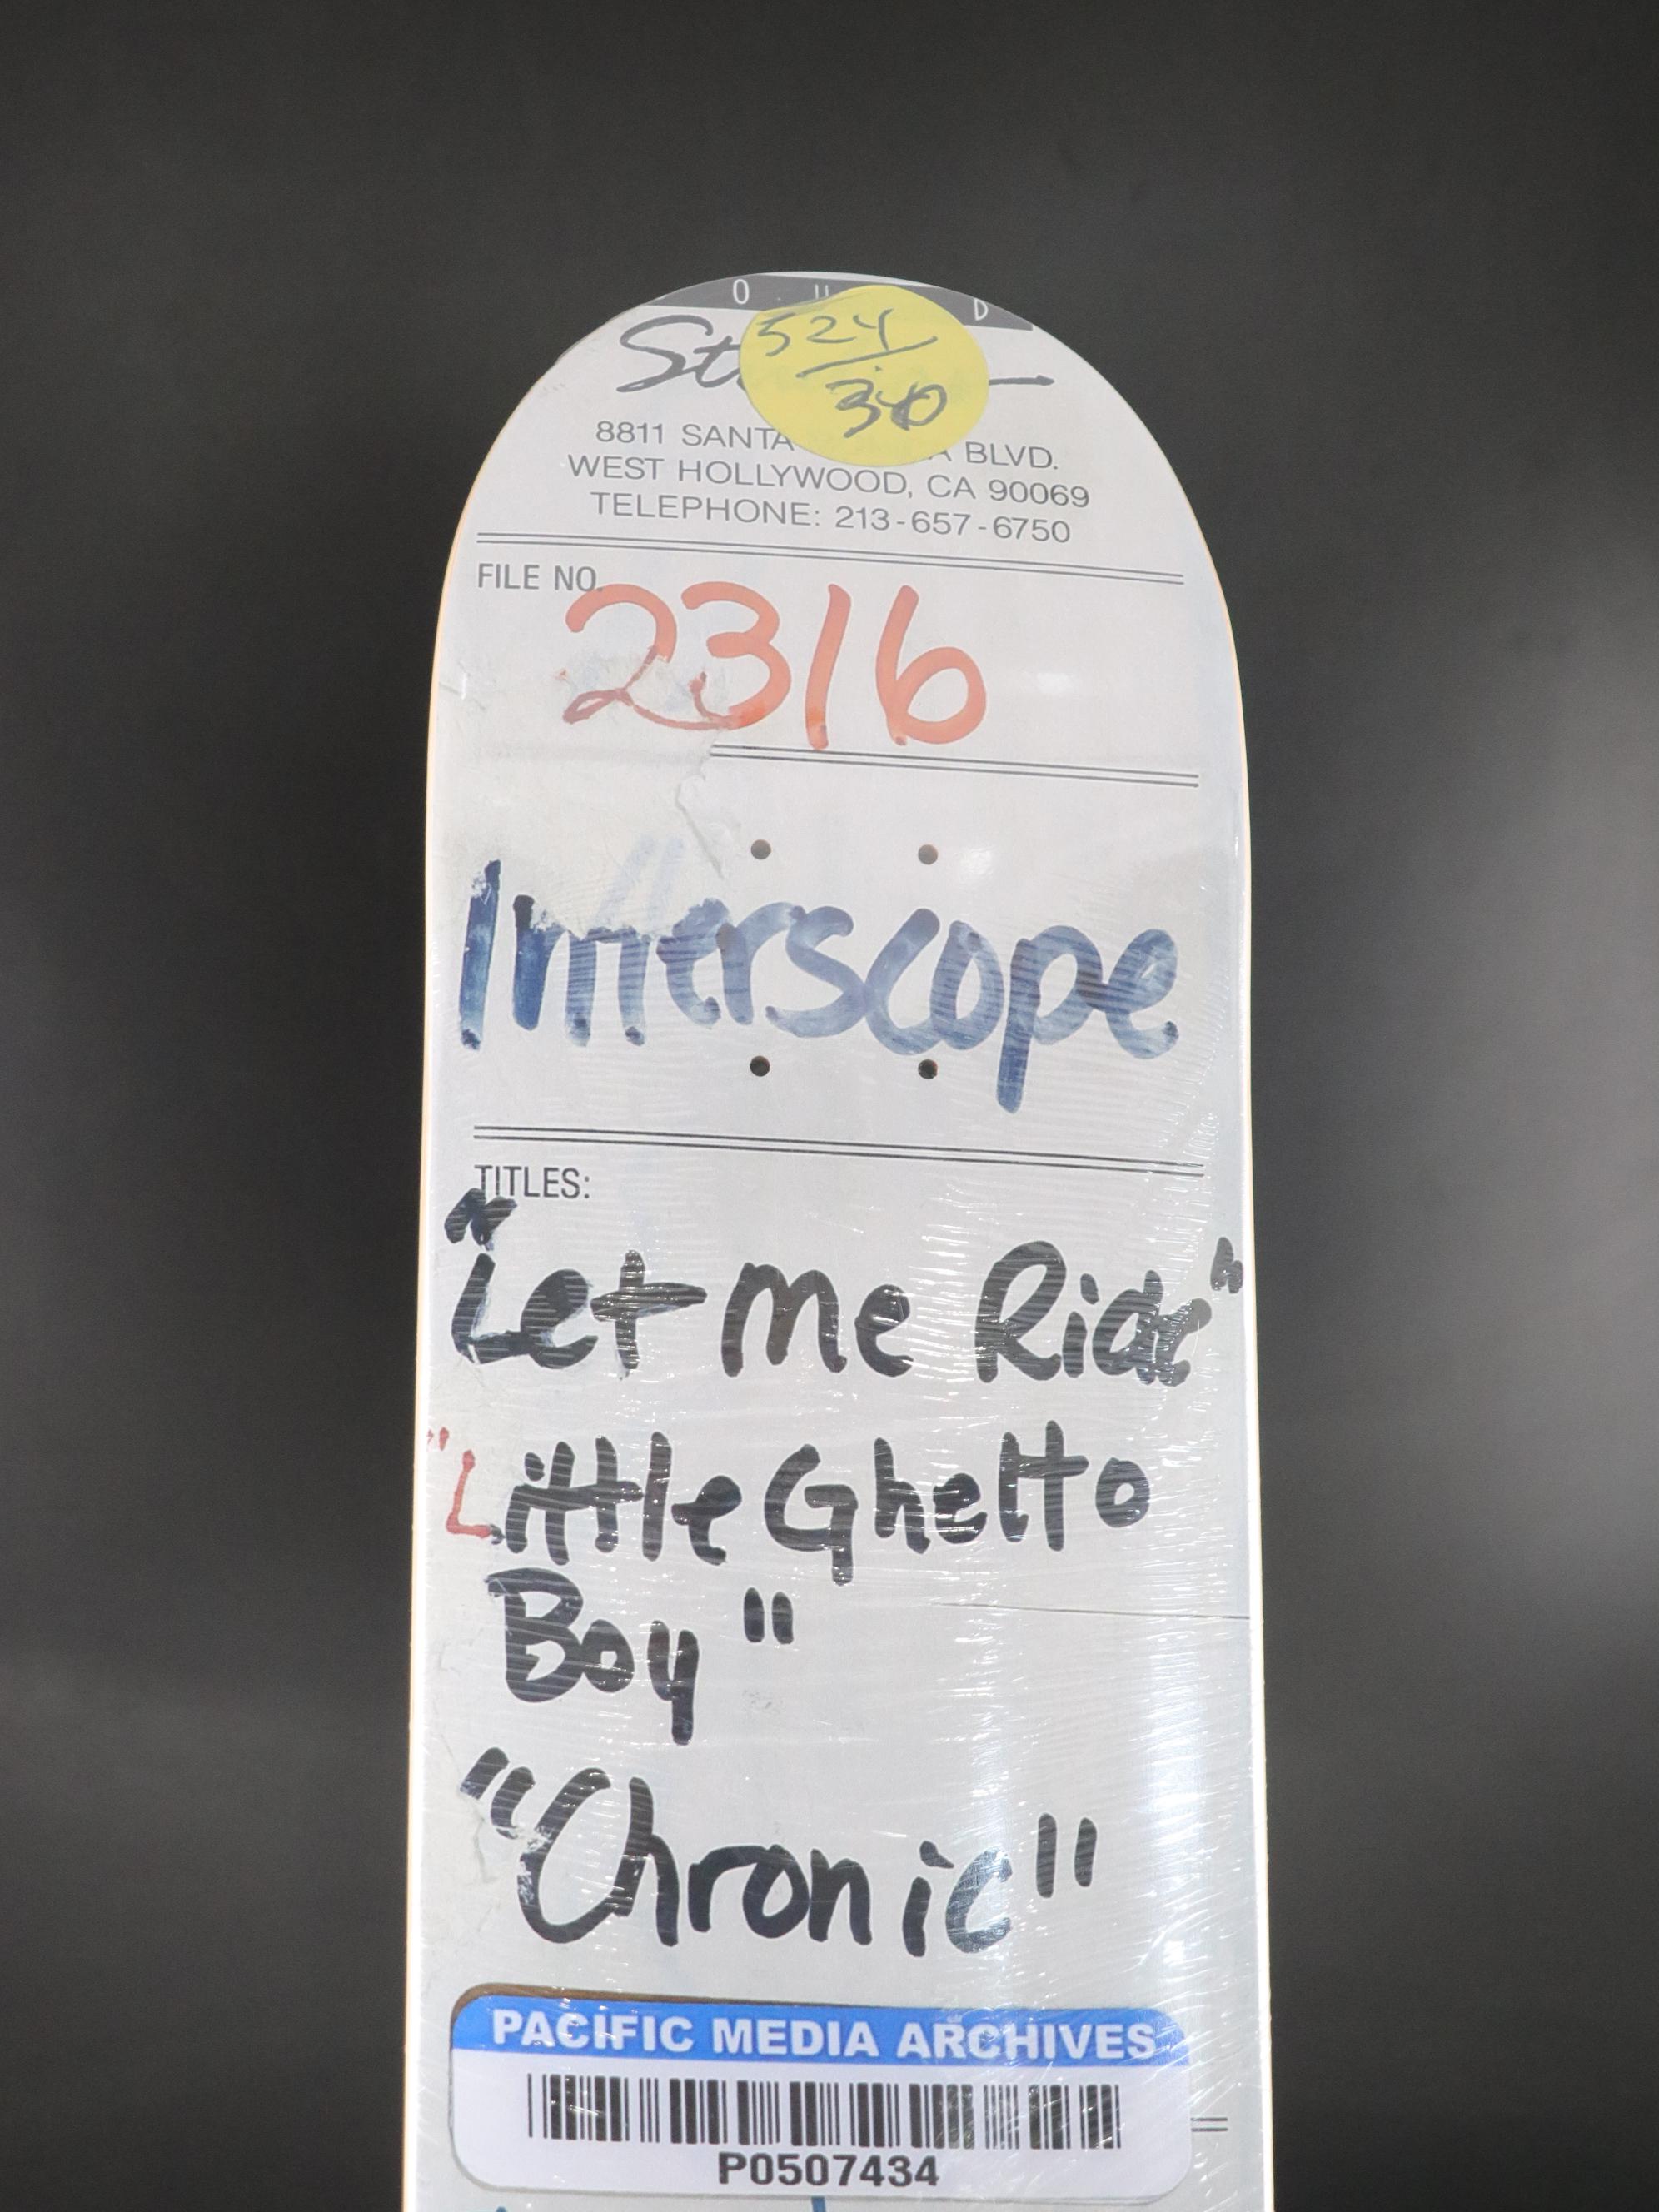 O U D
524/30
8811 SANTA A BLVD.
WEST HOLLYWOOD, CA 90069
TELEPHONE: 213-657-6750
FILE NO.
2316
Interscope
TITLES:
"Let me Ride"
"Little Ghetto
Boy"
"Chronic"
PACIFIC MEDIA ARCHIVES
P0507434